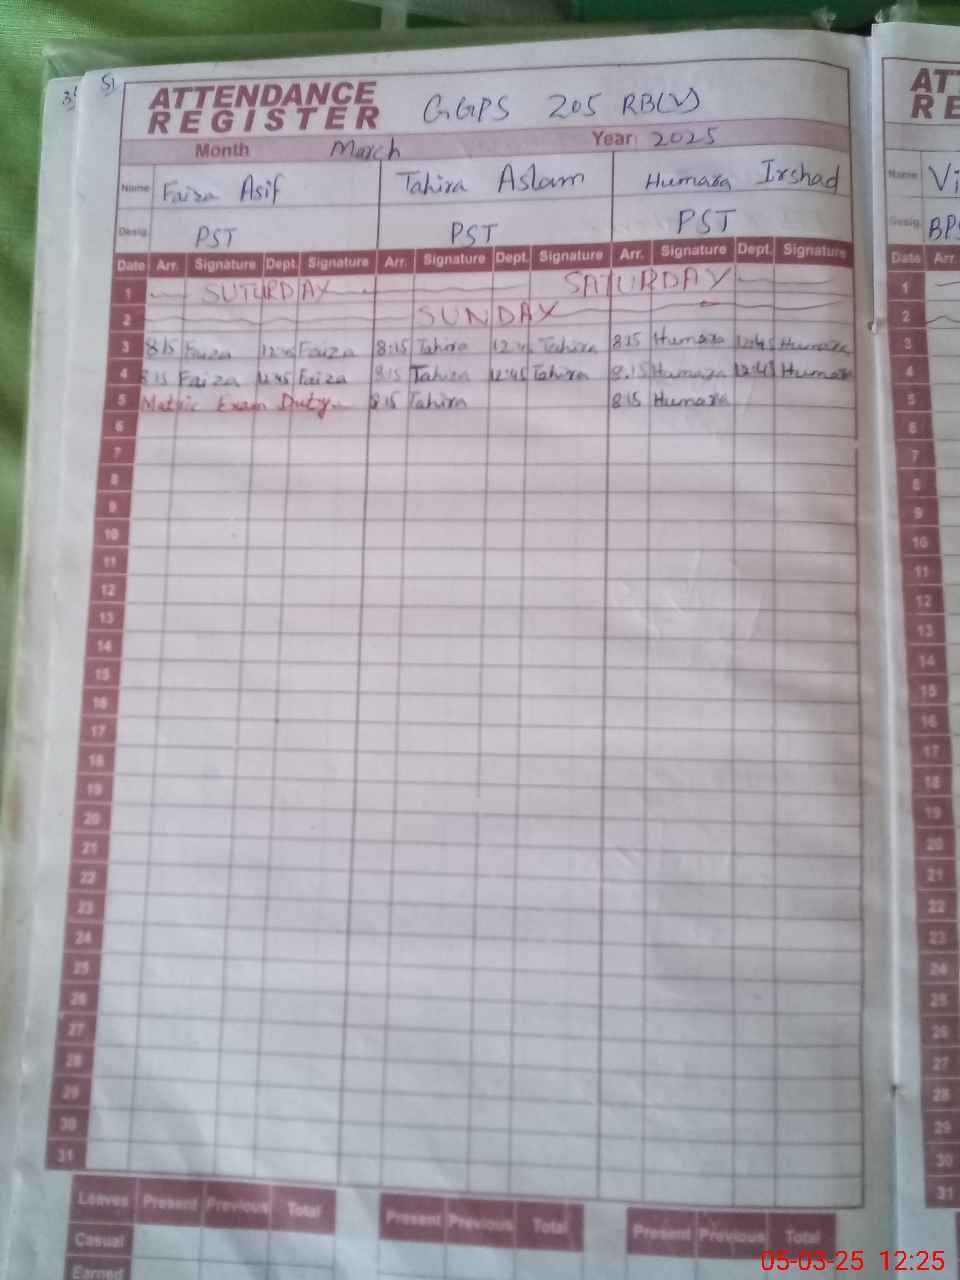 51
ATTENDANCE
REGISTER GGPS 205 RB(V)
Month March Year: 2025
Name Faiza Asif Tahira Aslam Humaza Irshad
Desig. PST PST PST
Date Arr. Signature Dept. Signature Arr. Signature Dept. Signature Arr. Signature Dept. Signature
1 SUTURDAY SATURDAY
2 SUNDAY
3 8:15 Faiza 12:45 Faiza 8:15 Tahira Tahira 8:15 Humaza 12:45 Humaza
4 8:15 Faiza 12:45 Faiza 8:15 Tahira 12:45 Tahira 8:15 Humaza 12:45 Humaza
5 Matric Exam Duty 8:15 Tahira 8:15 Humaza
6
7
8
9
10
11
12
13
14
15
16
17
18
19
20
21
22
23
24
25
26
27
28
29
30
31
Leaves Present Previous Total Present Previous Total Present Previous Total
Casual
Earned
AT
RE
Name Vi
Desig. BPS
Date Arr.
1
2
3
4
5
6
7
8
9
10
11
12
13
14
15
16
17
18
19
20
21
22
23
24
25
26
27
28
29
30
31
05-03-25 12:25